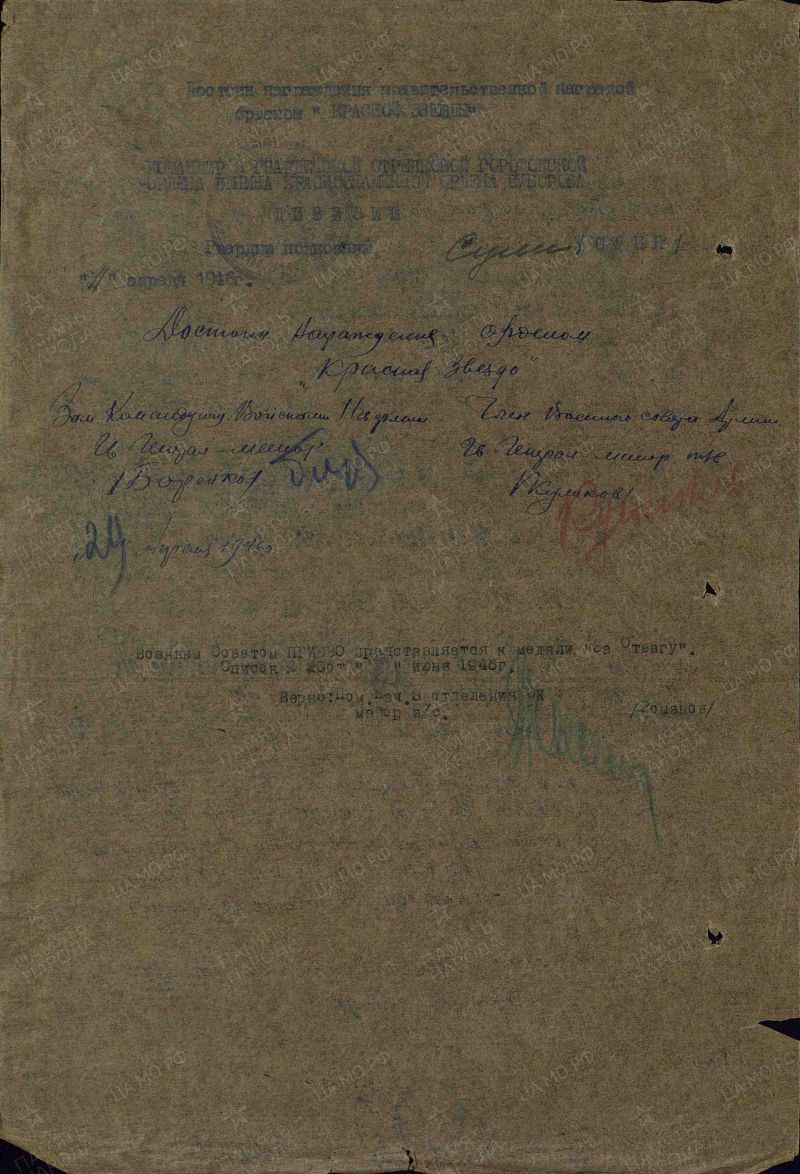 Достоин награждения правительственной наградой
орденом " КРАСНОЙ ЗВЕЗДЫ"
КОМАНДИР ГВАРДЕЙСКОЙ СТРЕЛКОВОЙ ГОРОДОКСКОЙ
ОРДЕНА ЛЕНИНА КРАСНОЗНАМЕННОЙ ОРДЕНА СУВОРОВА
ДИВИЗИИ
Гвардии полковник
апреля 1946г.
Достоин награждения орденом
"Красная Звезда"
Зам Командующ. Войсками
Член Военного совета Армии
Гв Генерал-майор
Гв Генерал майор т/в
/Куликов/
"24" Апреля 1946г
Военным Советом ПРИБВО представляется к медали "За Отвагу".
Список № июня 1946г.
Верно: Пом.Нач. отделения ОК
майор а/с. /Романов/